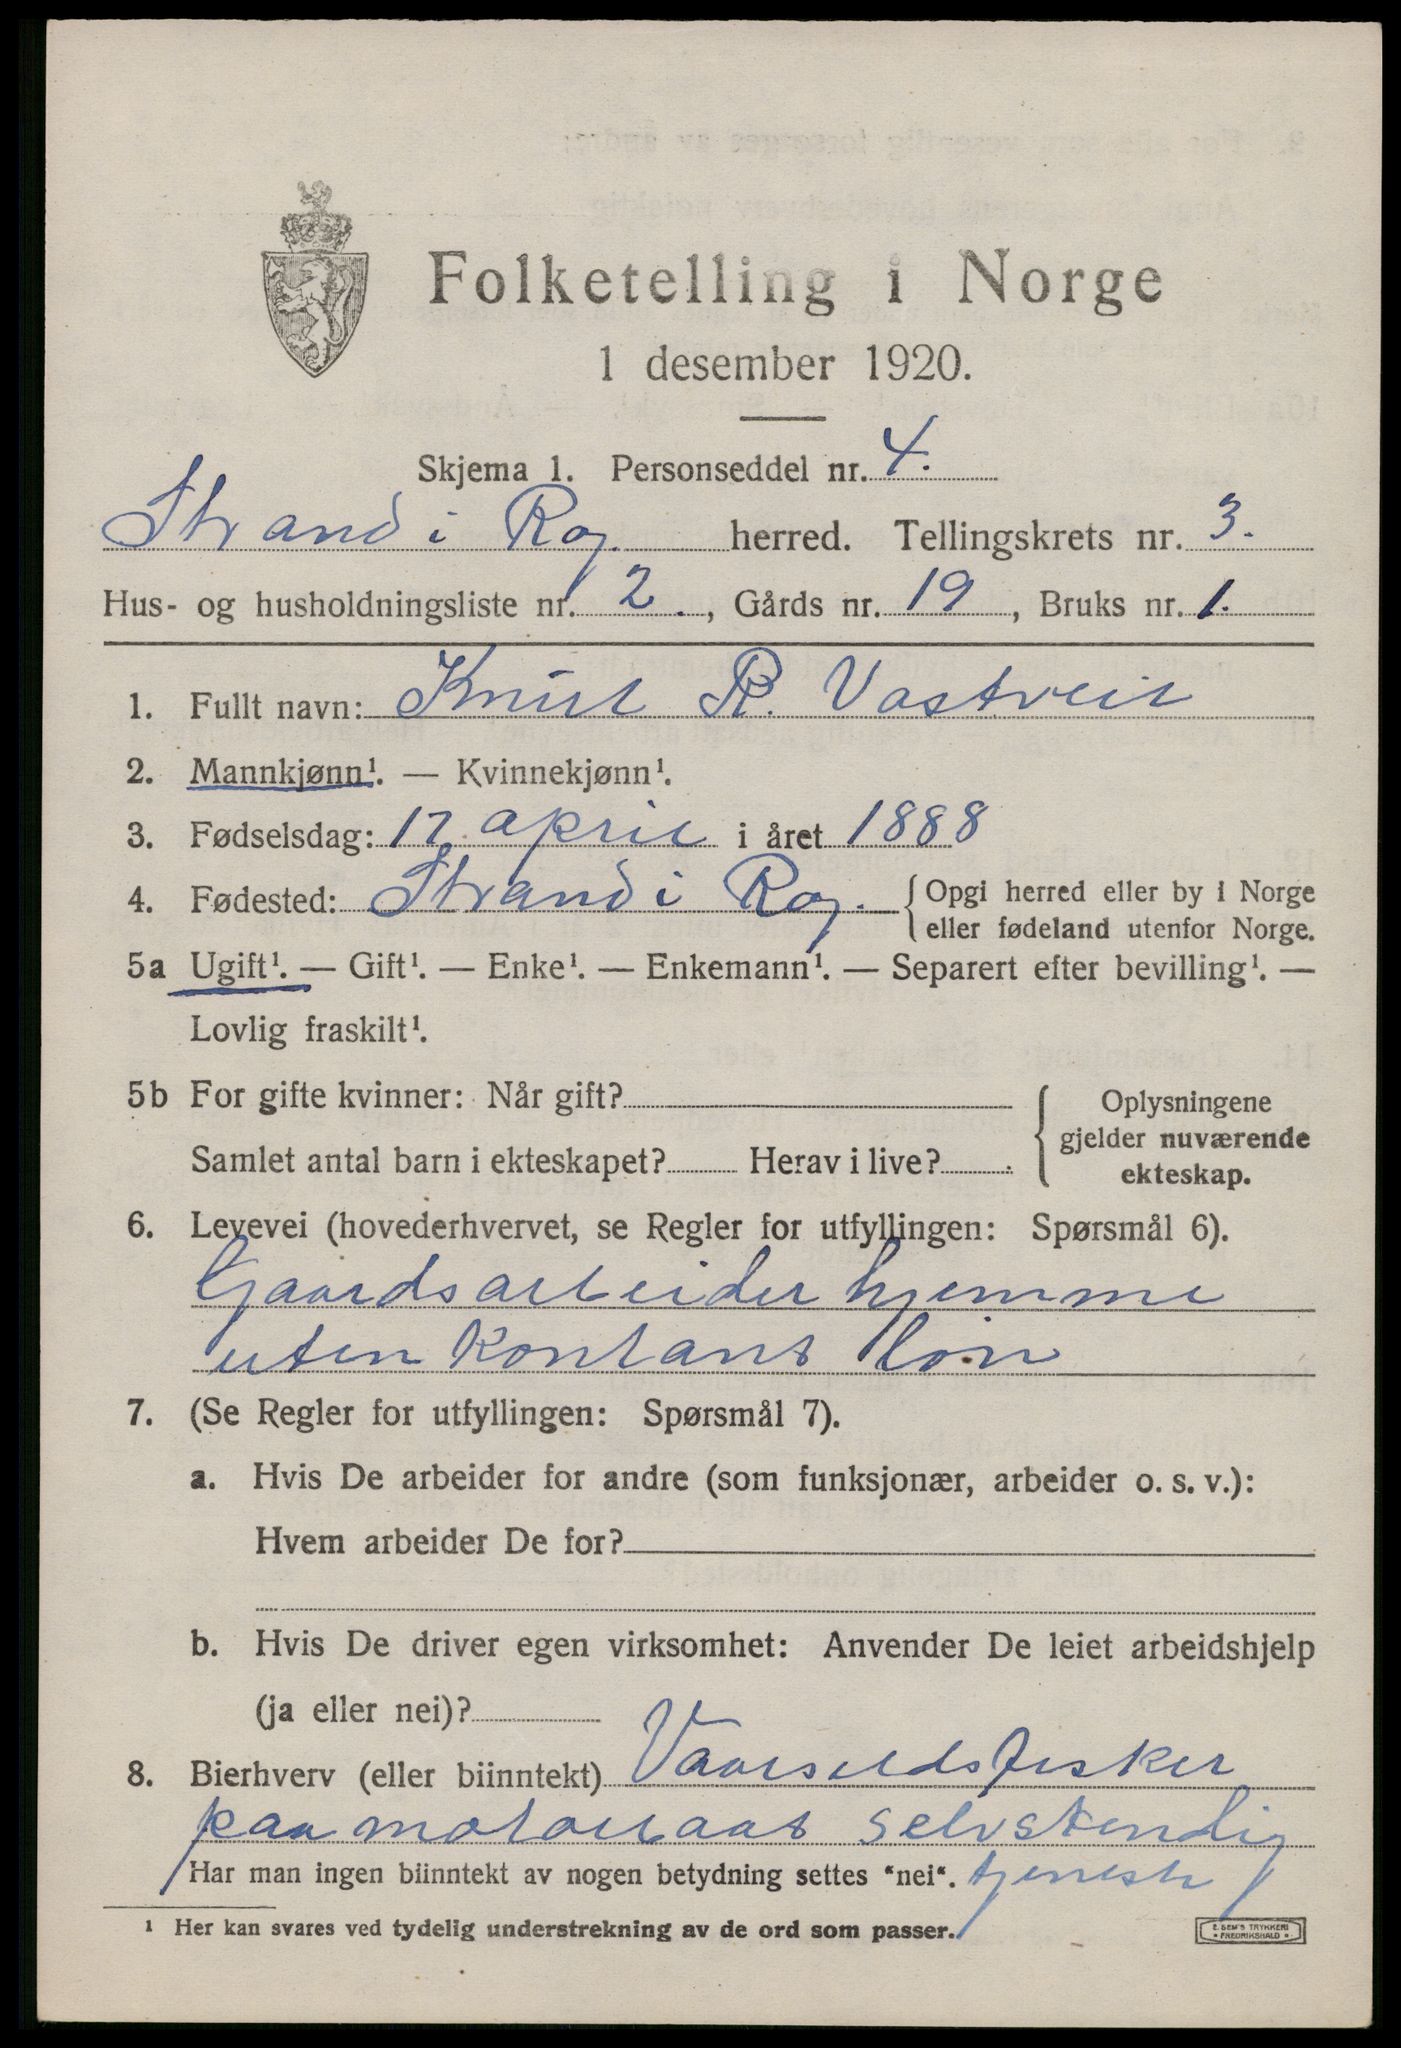 Folketelling i Norge
1 desember 1920.
Skjema 1. Personseddel nr. 4.
Strand i Rog. herred. Tellingskrets nr. 3.
Hus- og husholdningsliste nr. 2., Gårds nr. 19, Bruks nr. 1.
1. Fullt navn: Knut R. Vastveit
2. Mannkjønn¹. — Kvinnekjønn¹.
3. Fødselsdag: 17 april i året 1888
4. Fødested: Strand i Rog. { Opgi herred eller by i Norge
eller fødeland utenfor Norge.
5a Ugift¹. — Gift¹. — Enke¹. — Enkemann¹. — Separert efter bevilling¹. —
Lovlig fraskilt¹.
5b For gifte kvinner: Når gift?
Samlet antal barn i ekteskapet? Herav i live? .
Oplysningene
gjelder nuværende
ekteskap.
6. Levevei (hovederhvervet, se Regler for utfyllingen: Spørsmål 6).
Gaardsarbeider hjemme
uten kontant løn
7. (Se Regler for utfyllingen: Spørsmål 7).
a. Hvis De arbeider for andre (som funksjonær, arbeider o. s. v.):
Hvem arbeider De for?
b. Hvis De driver egen virksomhet: Anvender De leiet arbeidshjelp
(ja eller nei)?
8. Bierhverv (eller biinntekt) Vaarsildsfisker
paa motorbaat selvstendig
Har man ingen biinntekt av nogen betydning settes "nei". tjeneste
¹ Her kan svares ved tydelig understrekning av de ord som passer.
E. SEM'S TRYKKERI
• FREDRIKSHALD •